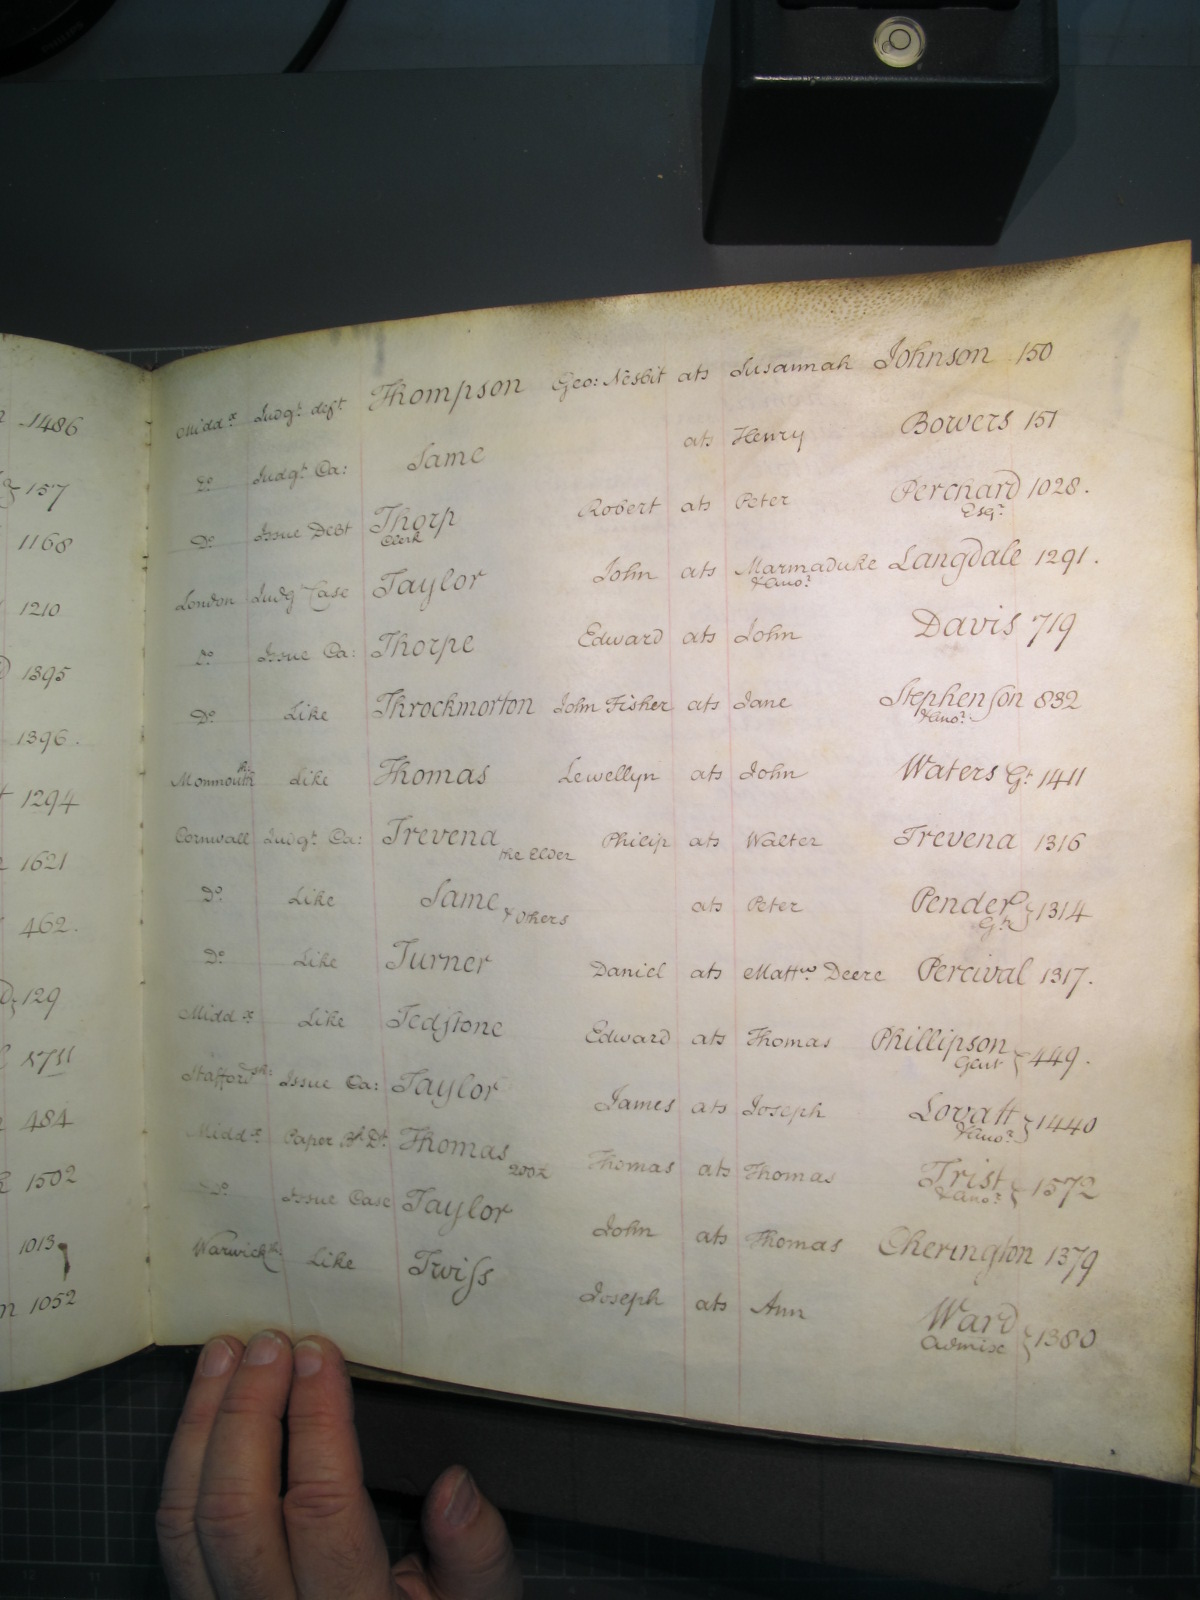 Midd.x Judg.t deft Thompson Geo: Nesbit ats Susannah Johnson 150
D.o Judg.t Ca: Same ats Henry Bowers 151
D.o Issue Debt Thorp Clerk Robert ats Peter Perchard Esq.r 1028.
London Judg Case Taylor John ats Marmaduke &ano.r Langdale 1291.
D.o Issue Ca: Thorpe Edward ats John Davis 719
D.o Like Throckmorton John Fisher ats Jane Stephenson &ano.r 832
Monmouth Like Thomas Lewellyn ats John Waters G.t 1411
Cornwall Judg.t Ca: Trevena the Elder Philip ats Walter Trevena 1316
D.o Like Same & Others ats Peter Pender G.t 1314
D.o Like Turner Daniel ats Matt.w Deere Percival 1317.
Midd.x Like Tedstone Edward ats Thomas Phillipson Gent 449.
Stafford sh: Issue Ca: Taylor James ats Joseph Lovatt &ano.r 1440
Midd.x Paper B.k D.t Thomas Thomas ats Thomas Trist &ano.r 1572
D.o Issue Case Taylor John ats Thomas Cherington 1379
Warwick Like Twiss Joseph ats Ann Ward Admix 1380
1486
157
1168
1210
1395
1396.
1294
1621
462.
129
1711
484
1502
1013
1052